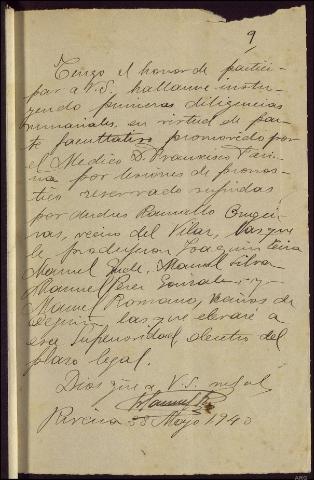 9
Tengo el honor de partici-
par a V.S. hallarme instru-
yendo primeras diligencias
sumariales, en virtud de par-
te facultativo promovido por
el Medico D. Francisco
por lesiones de pronos-
tico reservado sufridas
por Andres Ramallo
vecino del Vilar, las que
le produjeron Joaquin
Manuel Manuel Silva
Manuel Perez Gonzalez y
Manuel Romano, vecinos de
las que elevaré a
esa Superioridad, dentro del
plazo legal.
Dios gue a V.S.
Riveira Mayo 1940